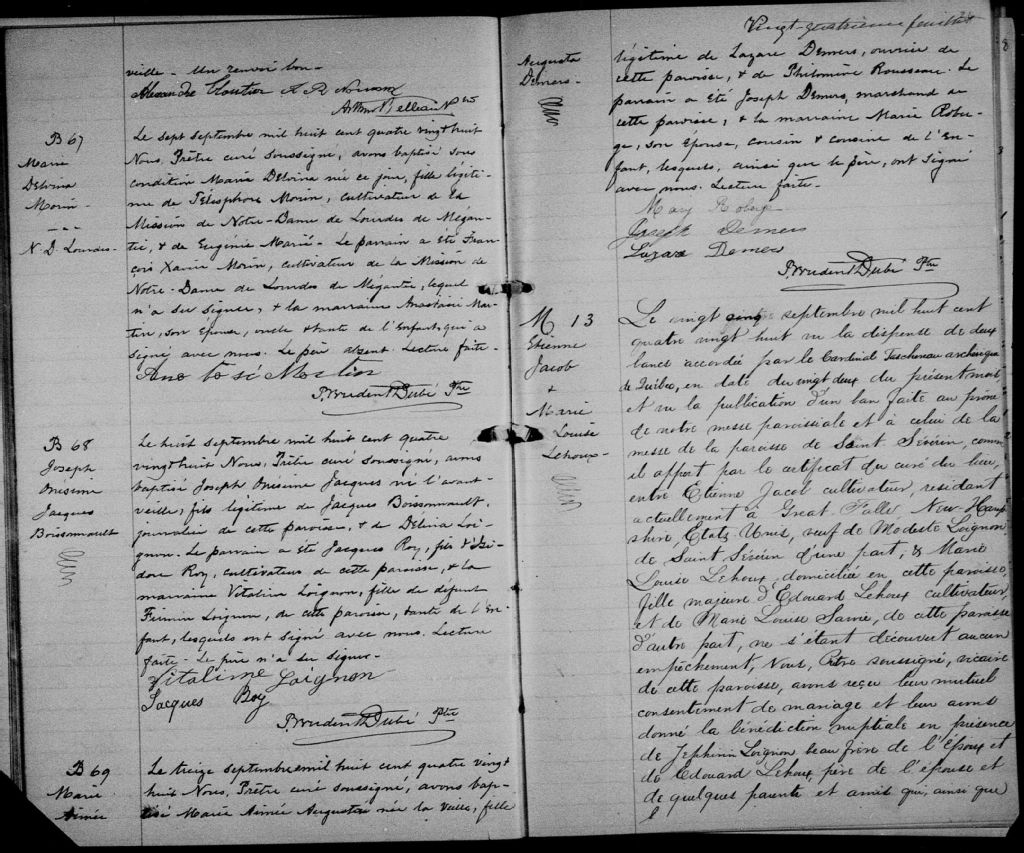 veille - Un renvoi bon -
Alexandre Cloutier
B 67
Marie
Delvina
Morin -
N. D. Lourdes -
Le sept septembre mil huit cent quatre vingt huit
Nous, Prêtre curé soussigné, avons baptisé sous
condition Marie Delvina née ce jour, fille légiti-
me de Télesphore Morin, cultivateur de la
Mission de Notre-Dame de Lourdes de Mégan-
tic, & de Eugénie Marié - Le parrain a été Fran-
çois Xavier Morin, cultivateur de la Mission de
Notre-Dame de Lourdes de Mégantic, lequel
n'a su signer, & la marraine Anastasie Mar-
tin, son épouse, oncle & tante de l'Enfant, qui a
signé avec nous. Le père absent. Lecture faite -
Prudent Dubé Ptre
B 68
Joseph
Onésime
Jacques
Boissonnault
Le huit septembre mil huit cent quatre
vingt huit Nous, Prêtre curé soussigné, avons
baptisé Joseph Onésime Jacques né l'avant-
veille, fils légitime de Jacques Boissonnault,
journalier de cette paroisse, & de Delvina Loi-
gnon. Le parrain a été Jacques Roy, fils d'Isi-
dore Roy, cultivateur de cette paroisse, & la
marraine Vitaline Loignon, fille de défunt
Firmin Loignon, de cette paroisse, tante de l'En-
fant, lesquels ont signé avec nous. Lecture
faite - Le père n'a su signer -
Vitaline Loignon
Jacques Roy
Prudent Dubé Ptre
B 69
Marie
Aimée
Le treize septembre mil huit cent quatre vingt
huit Nous, Prêtre curé soussigné, avons bap-
tisé Marie Aimée Augusta née la veille, fille
Vingt-quatrième feuillet
Augusta
Demers -
légitime de Lazare Demers, ouvrier de
cette paroisse, & de Philomène Rousseau. Le
parrain a été Joseph Demers, marchand de
cette paroisse, & la marraine Marie Rober-
ge, son épouse, cousin & cousine de l'En-
fant, lesquels, ainsi que le père, ont signé
avec nous. Lecture faite -
Mary Roberge
Joseph Demers
Lazare Demers
Prudent Dubé Ptre
M 13
Etienne
Jacob
&
Marie
Louise
Lehoux -
Le vingt cinq septembre mil huit cent
quatre vingt huit vu la dispense de deux
bancs accordée par le Cardinal Taschereau archevêque
de Québec, en date du vingt deux du présent mois
et vu la publication d'un ban faite au prône
de notre messe paroissiale et à celui de la
messe de la paroisse de Saint Séverin, comme
il appert par le certificat du curé du lieu,
entre Etienne Jacob cultivateur, résidant
actuellement à Great Falls New-Hamp
shire Etats Unis, veuf de Modeste Loignon
de Saint Séverin d'une part, & Marie
Louise Lehoux domiciliée en cette paroisse,
fille majeure d'Edouard Lehoux cultivateur,
et de Marie Louise de cette paroisse
d'autre part, ne s'étant découvert aucun
empêchement, Nous, Prêtre soussigné, vicaire
de cette paroisse, avons reçu leur mutuel
consentement de mariage et leur avons
donné la bénédiction nuptiale en présence
de Loignon beau frère de l'époux et
de Edouard Lehoux, père de l'épouse et
de quelques parents et amis qui, ainsi que